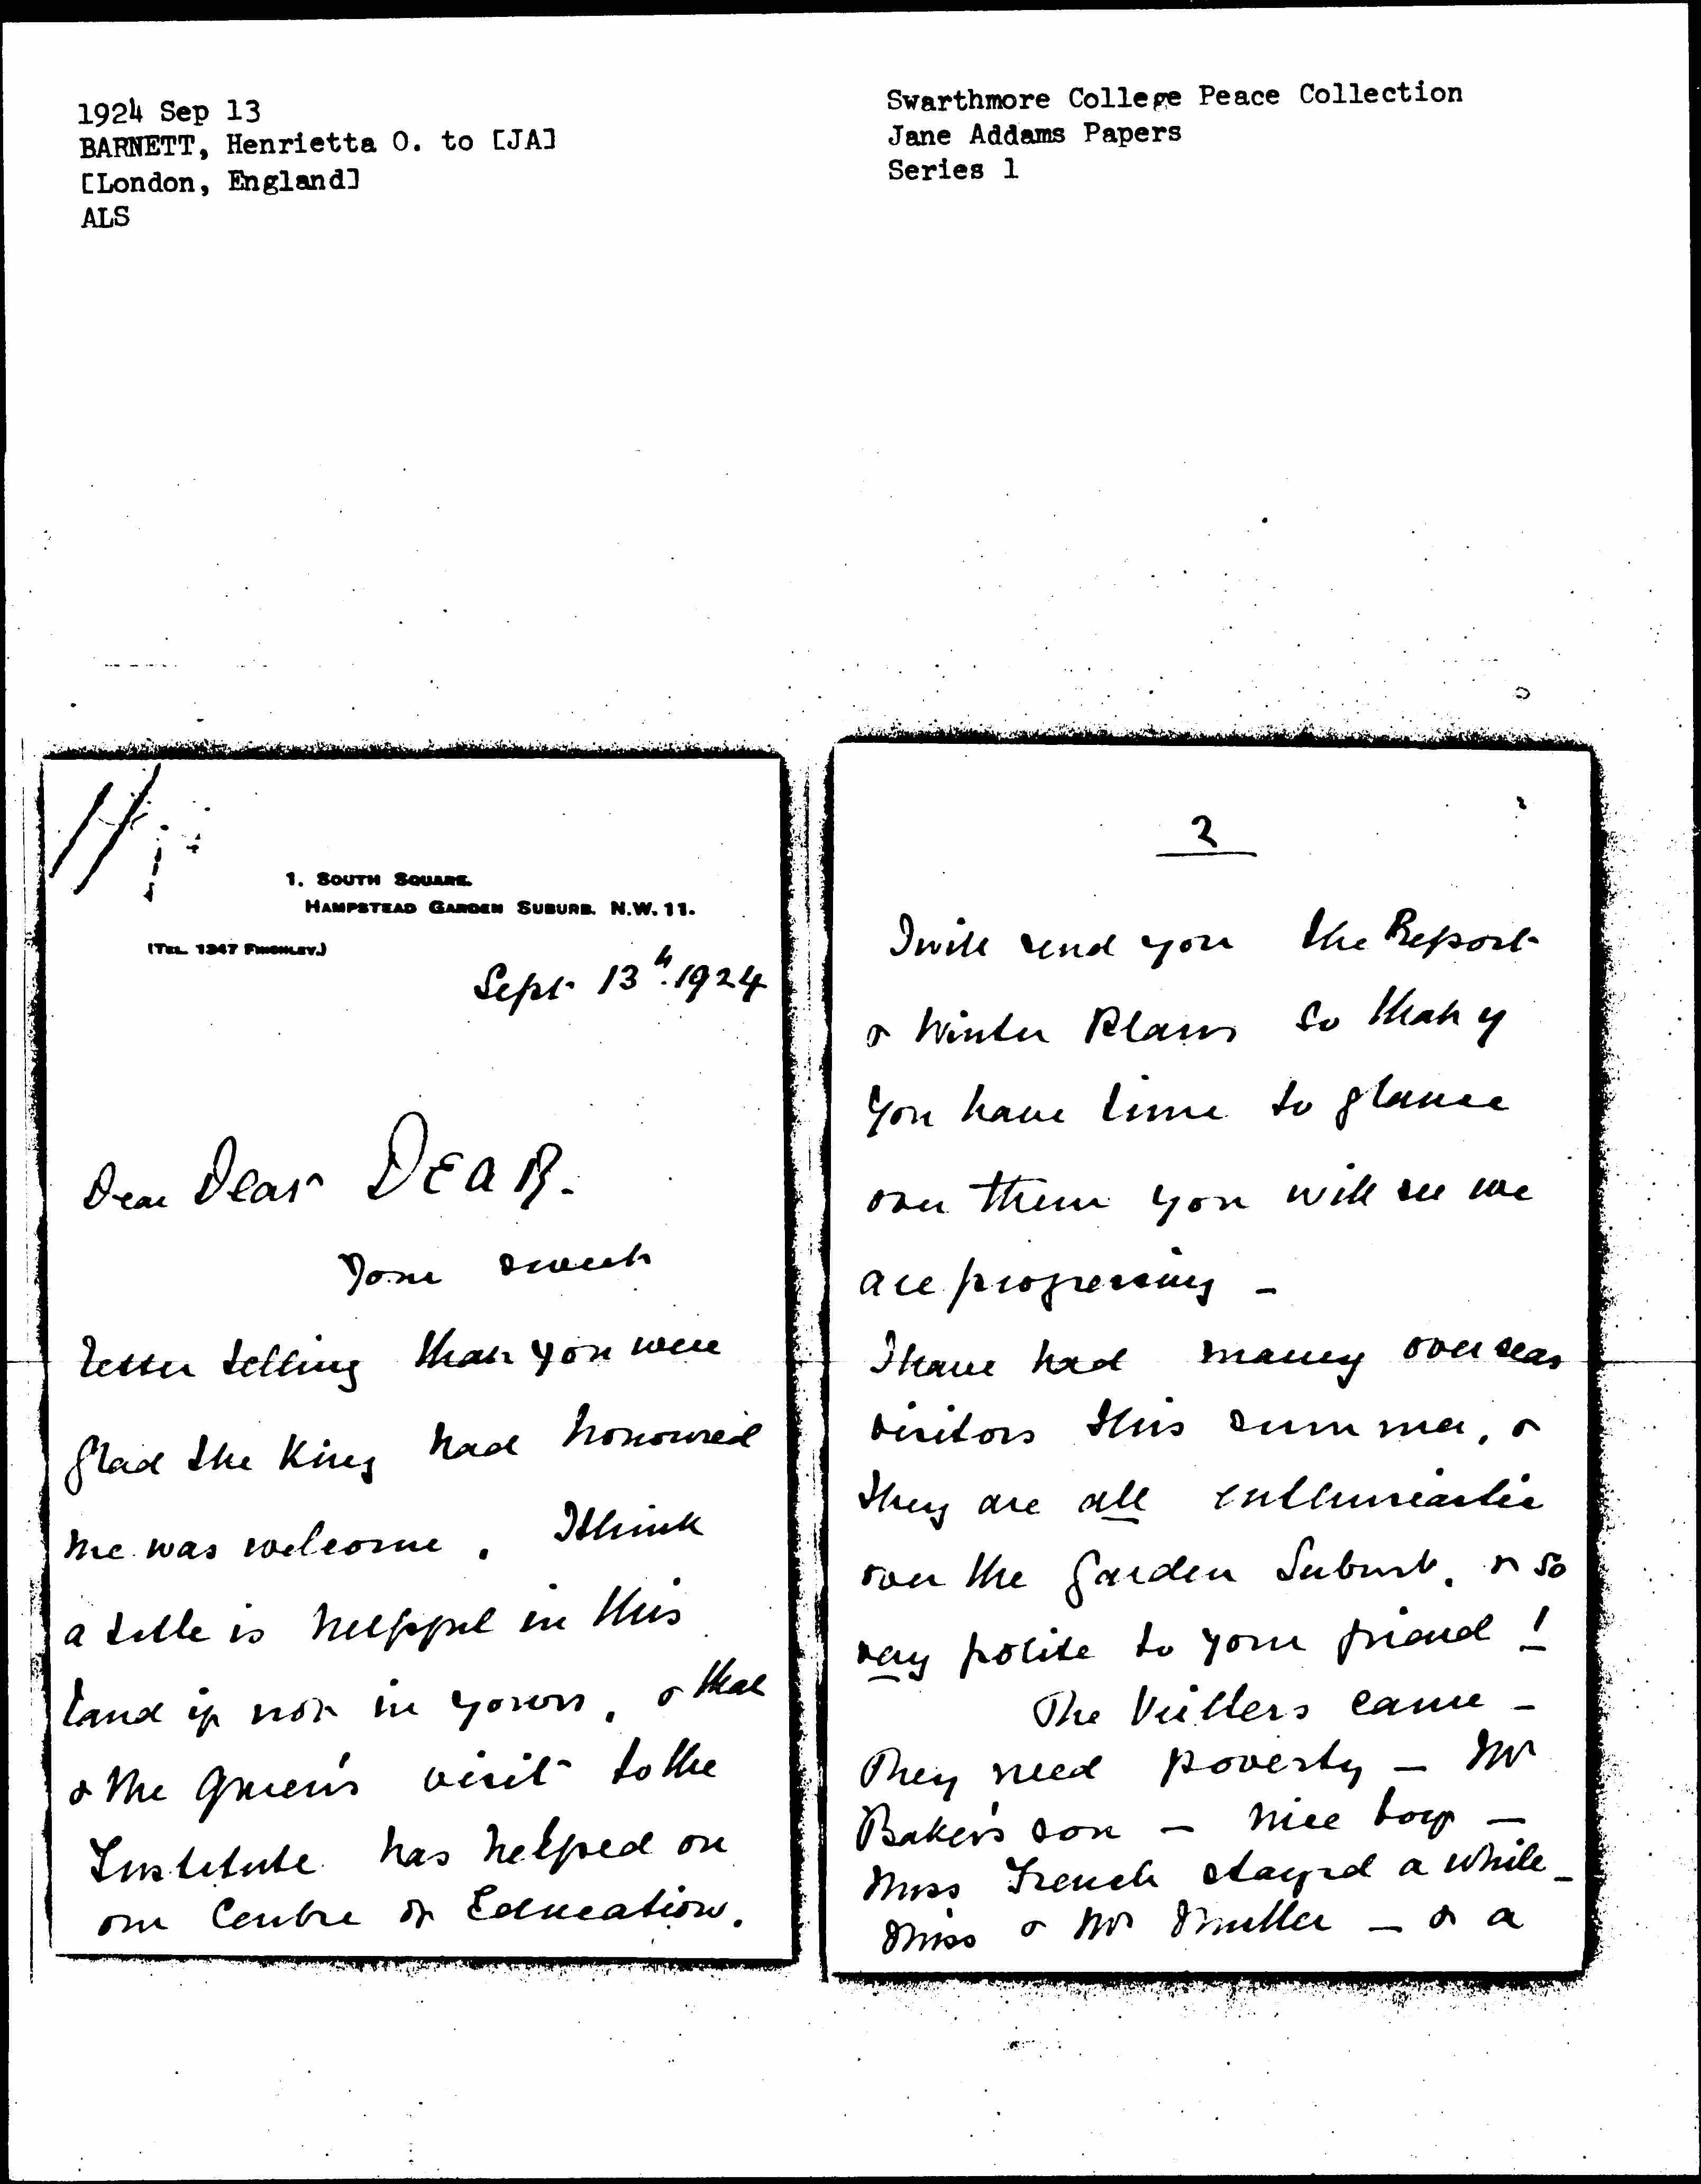 1924 Sep 13
BARNETT, Henrietta O. to [JA]
[London, England]
ALS
Swarthmore College Peace Collection
Jane Addams Papers
Series 1
1. SOUTH SQUARE.
HAMPSTEAD GARDEN SUBURB. N.W. 11.
(TEL. 1347 FINCHLEY.)
Sept 13th. 1924
Dear Dear DEAR.
Your sweet
letter telling that you were
glad the King had honoured
me was welcome. I think
a title is helpful in this
land if not in yours, & that
& the Queen's visit to the
Institute has helped on
our Centre of Education.
2
I will send you the Report
& Winter Plans so that if
you have time to glance
over them you will see we
are progressing –
I have had many overseas
visitors this summer, &
they are all enthusiastic
over the Garden Suburb, & so
very polite to your friend!
The came –
They need poverty – Mr
Baker's son – nice boy –
Miss French stayed a while –
Miss & Mr – & a